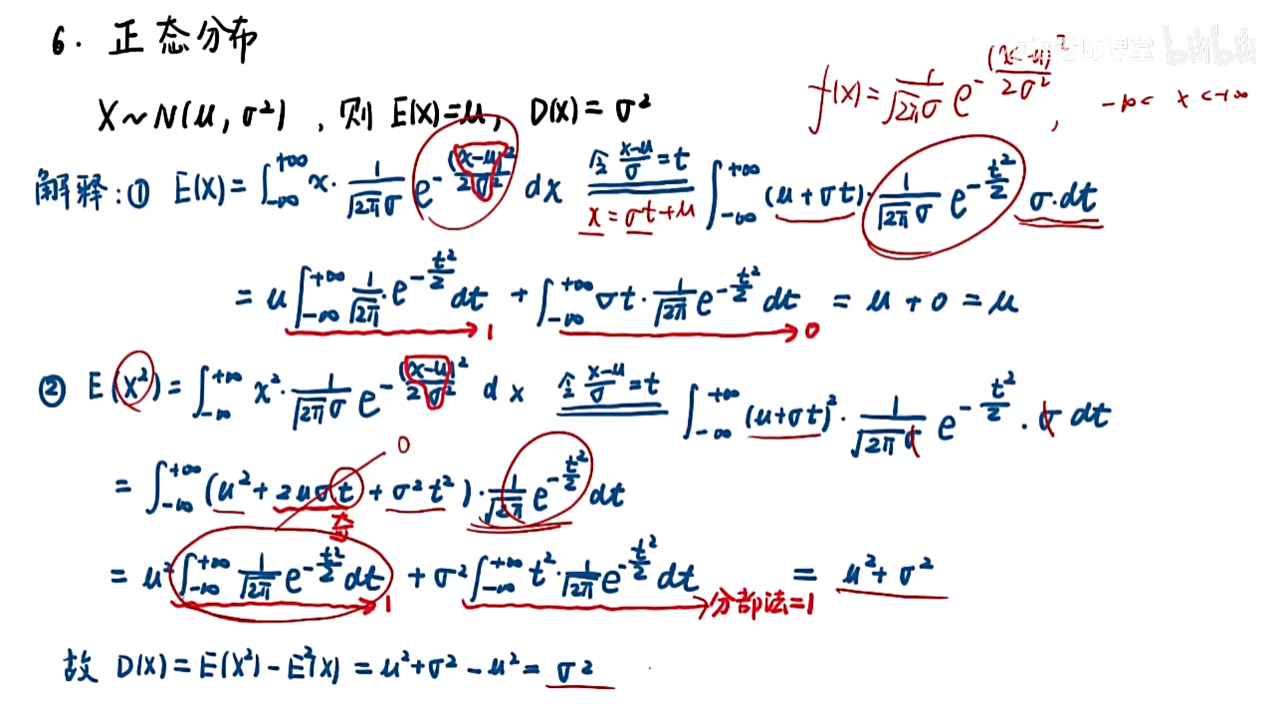 6. 正态分布
X~N(μ, σ²), 则 E(X)=μ, D(X)=σ²
f(x)=1/(√2π σ) e^(-(x-μ)²/2σ²), -∞< x <+∞
解释:① E(X)=∫_{-∞}^{+∞} x·1/(√2π σ) e^(-(x-μ)²/2σ²) dx 令 (x-μ)/σ=t ∫_{-∞}^{+∞} (μ+σt)·1/(√2π σ) e^(-t²/2) σ·dt
x=σt+μ
=μ∫_{-∞}^{+∞} 1/√2π·e^(-t²/2) dt + ∫_{-∞}^{+∞} σt·1/√2π e^(-t²/2) dt = μ+0=μ
1 0
② E(X²)=∫_{-∞}^{+∞} x²·1/(√2π σ) e^(-(x-μ)²/2σ²) dx 令 (x-μ)/σ=t ∫_{-∞}^{+∞} (μ+σt)²·1/(√2π σ) e^(-t²/2)·σ dt
0
=∫_{-∞}^{+∞} (μ²+2μσt+σ²t²)·1/√2π e^(-t²/2) dt
奇
=μ²∫_{-∞}^{+∞} 1/√2π e^(-t²/2) dt + σ²∫_{-∞}^{+∞} t²·1/√2π e^(-t²/2) dt = μ²+σ²
1 分部法=1
故 D(X)=E(X²)-E²(X)=μ²+σ²-μ²=σ²
bilibili